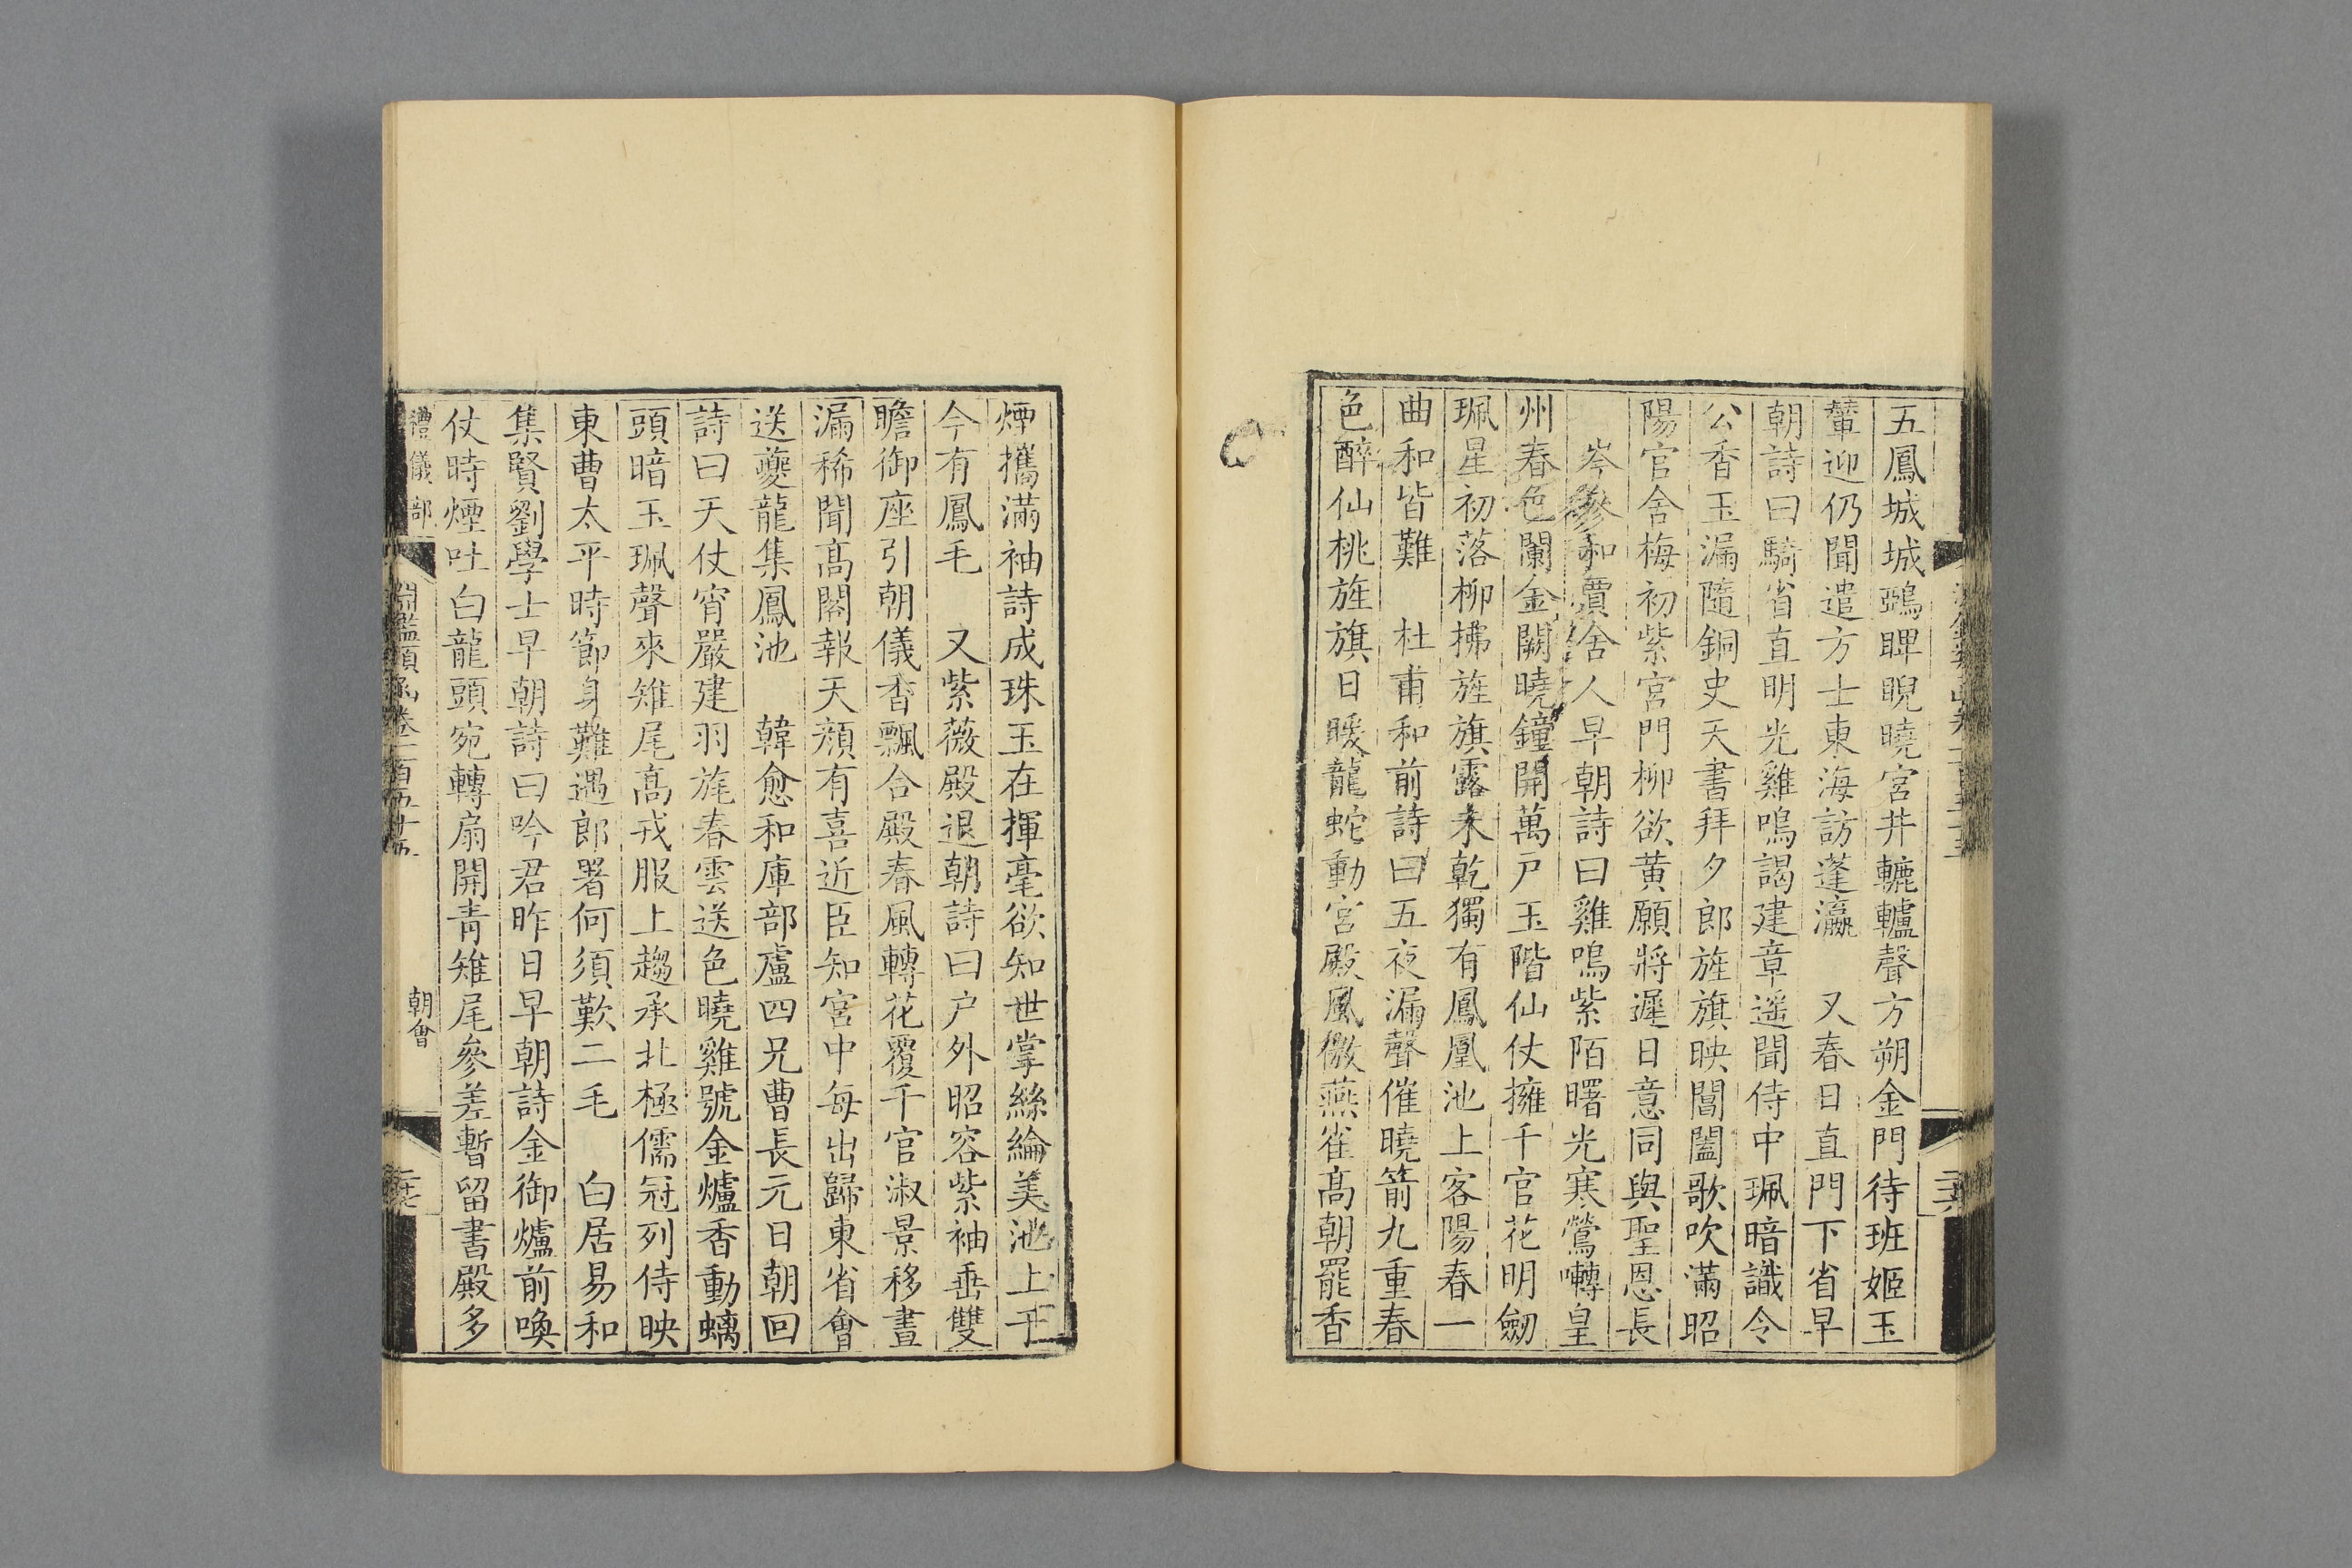 五鳳城城鵶睥睨曉宮井轆轤聲方朔金門待班姬玉
輦迎仍聞遣方士東海訪蓬瀛　又春日直門下省早
朝詩曰騎省直明光雞鳴謁建章遥聞侍中珮暗識令
公香玉漏隨銅史天書拜夕郎旌旗映閶闔歌吹滿昭
陽官舍梅初紫宮門柳欲黄願將遲日意同與聖恩長
岑參和賈舍人早朝詩曰雞鳴紫陌曙光寒鶯囀皇
州春色闌金闕曉鐘開萬戸玉階仙仗擁千官花明劒
珮星初落柳拂旌旗露未乾獨有鳳凰池上客陽春一
曲和皆難　杜甫和前詩曰五夜漏聲催曉箭九重春
色醉仙桃旌旗日暖龍蛇動宮殿風微燕雀髙朝罷香
煙攜滿袖詩成珠玉在揮毫欲知世掌絲綸美池上于
今有鳳毛　又紫薇殿退朝詩曰户外昭容紫袖垂雙
瞻御座引朝儀香飄合殿春風轉花覆千官淑景移晝
漏稀聞髙閣報天顔有喜近臣知宮中每出歸東省會
送夔龍集鳳池　韓愈和庫部盧四兄曹長元日朝回
詩曰天仗宵嚴建羽旄春雲送色曉雞號金爐香動螭
頭暗玉珮聲來雉尾髙戎服上趨承北極儒冠列侍映
東曹太平時節身難遇郎署何須歎二毛　白居易和
集賢劉學士早朝詩曰吟君昨日早朝詩金御爐前喚
仗時煙吐白龍頭宛轉扇開青雉尾參差暫留書殿多
禮儀部　淵鑑類函卷一百五十五　朝會